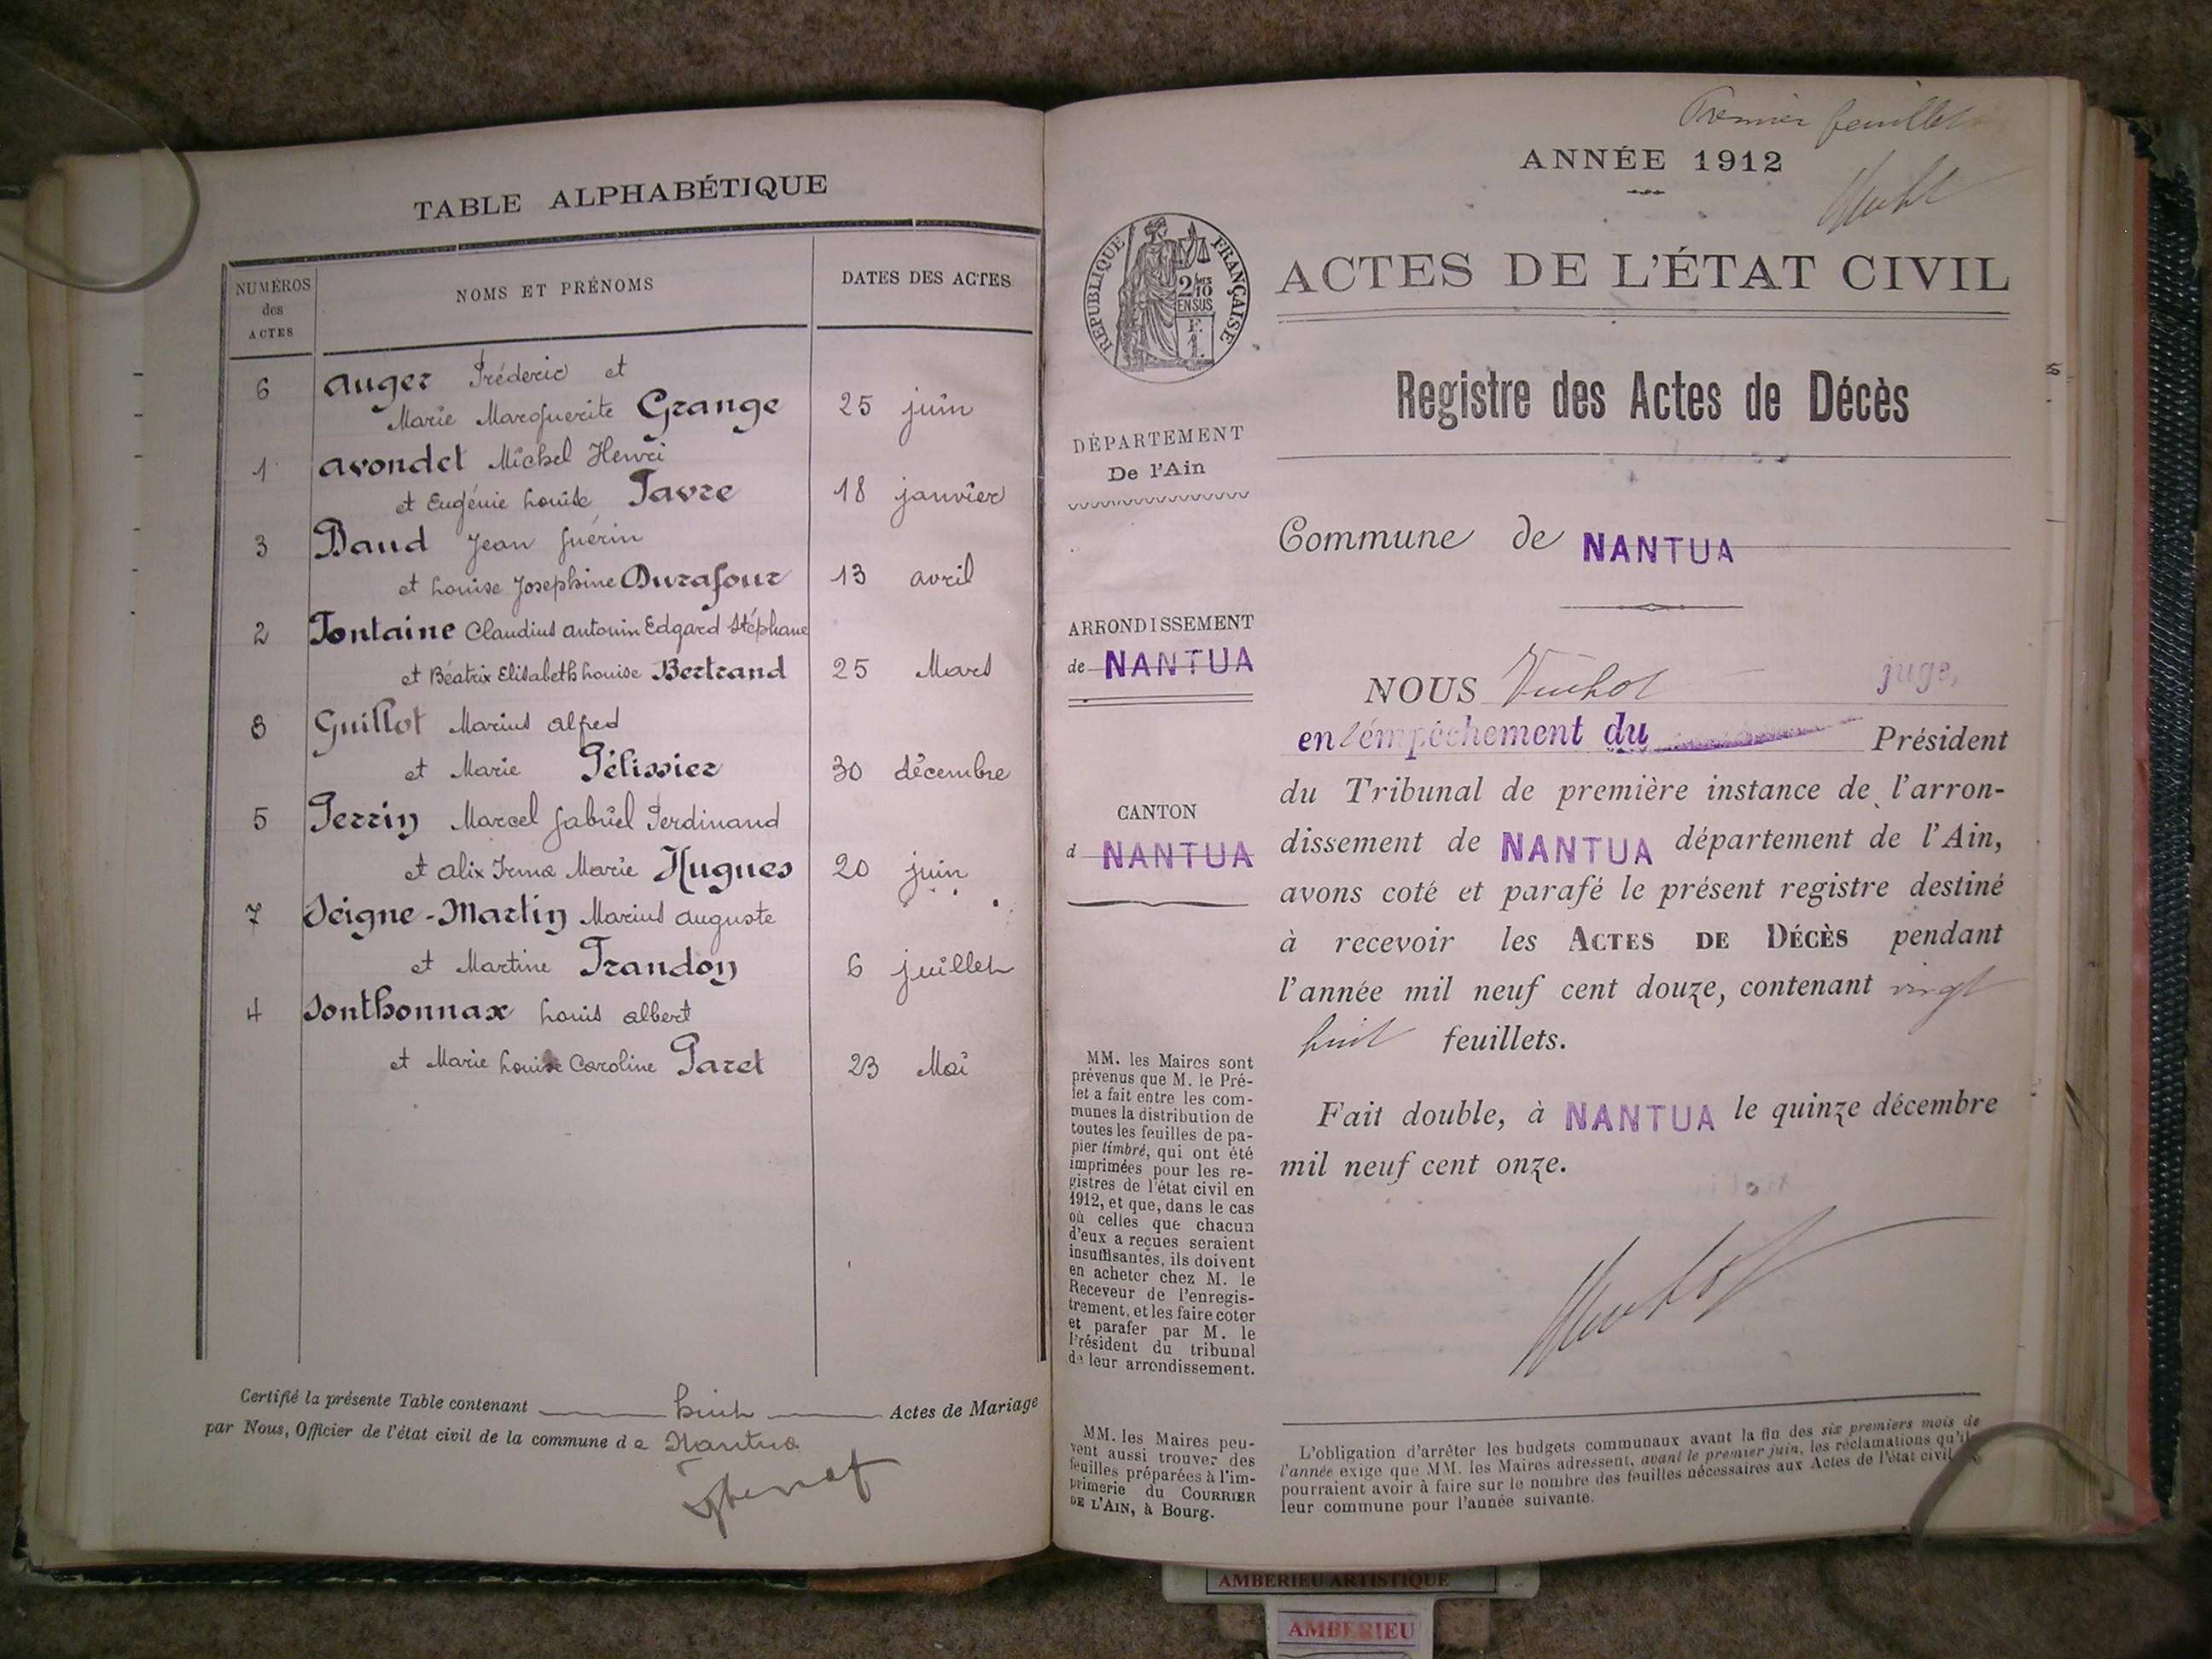 TABLE ALPHABÉTIQUE
NUMÉROS
des
ACTES
NOMS ET PRÉNOMS
DATES DES ACTES
6 Auger Fréderic et
Marie Marguerite Grange 25 juin
1 Avondet Michel Henri
et Eugénie Louise Favre 18 janvier
3 Baud Jean Guérin
et Louise Josephine Durafour 13 avril
2 Fontaine Claudius Antonin Edgard Stéphane
et Béatrix Elisabeth Louise Bertrand 25 Mars
8 Guillot Marius Alfred
et Marie Pélissier 30 décembre
5 Perrin Marcel Gabriel Ferdinand
et Alix Irma Marie Hugues 20 juin
7 Seigne-Martin Marius Auguste
et Martine Trandon 6 juillet
4 Sonthonnax Louis Albert
et Marie Louise Caroline Paret 23 Mai
Certifié la présente Table contenant huit Actes de Mariage
par Nous, Officier de l'état civil de la commune de Nantua
Premier feuillet
ANNÉE 1912
RÉPUBLIQUE FRANÇAISE
2/10
EN SUS
F.
1.
ACTES DE L'ÉTAT CIVIL
Registre des Actes de Décès
DÉPARTEMENT
De l'Ain
Commune de NANTUA
ARRONDISSEMENT
de NANTUA
CANTON
d NANTUA
NOUS juge,
en l'empêchement du Président
du Tribunal de première instance de l'arron-
dissement de NANTUA département de l'Ain,
avons coté et parafé le présent registre destiné
à recevoir les ACTES DE DÉCÈS pendant
l'année mil neuf cent douze, contenant vingt
huit feuillets.
Fait double, à NANTUA le quinze décembre
mil neuf cent onze.
MM. les Maires sont
prévenus que M. le Pré-
fet a fait entre les com-
munes la distribution de
toutes les feuilles de pa-
pier timbré, qui ont été
imprimées pour les re-
gistres de l'état civil en
1912, et que, dans le cas
où celles que chacun
d'eux a reçues seraient
insuffisantes, ils doivent
en acheter chez M. le
Receveur de l'enregis-
trement, et les faire coter
et parafer par M. le
Président du tribunal
de leur arrondissement.
MM. les Maires peu-
vent aussi trouver des
feuilles préparées à l'im-
primerie du COURRIER
DE L'AIN, à Bourg.
L'obligation d'arrêter les budgets communaux avant la fin des six premiers mois de
l'année exige que MM. les Maires adressent, avant le premier juin, les réclamations qu'ils
pourraient avoir à faire sur le nombre des feuilles nécessaires aux Actes de l'état civil
leur commune pour l'année suivante.
AMBERIEU ARTISTIQUE
AMBERIEU